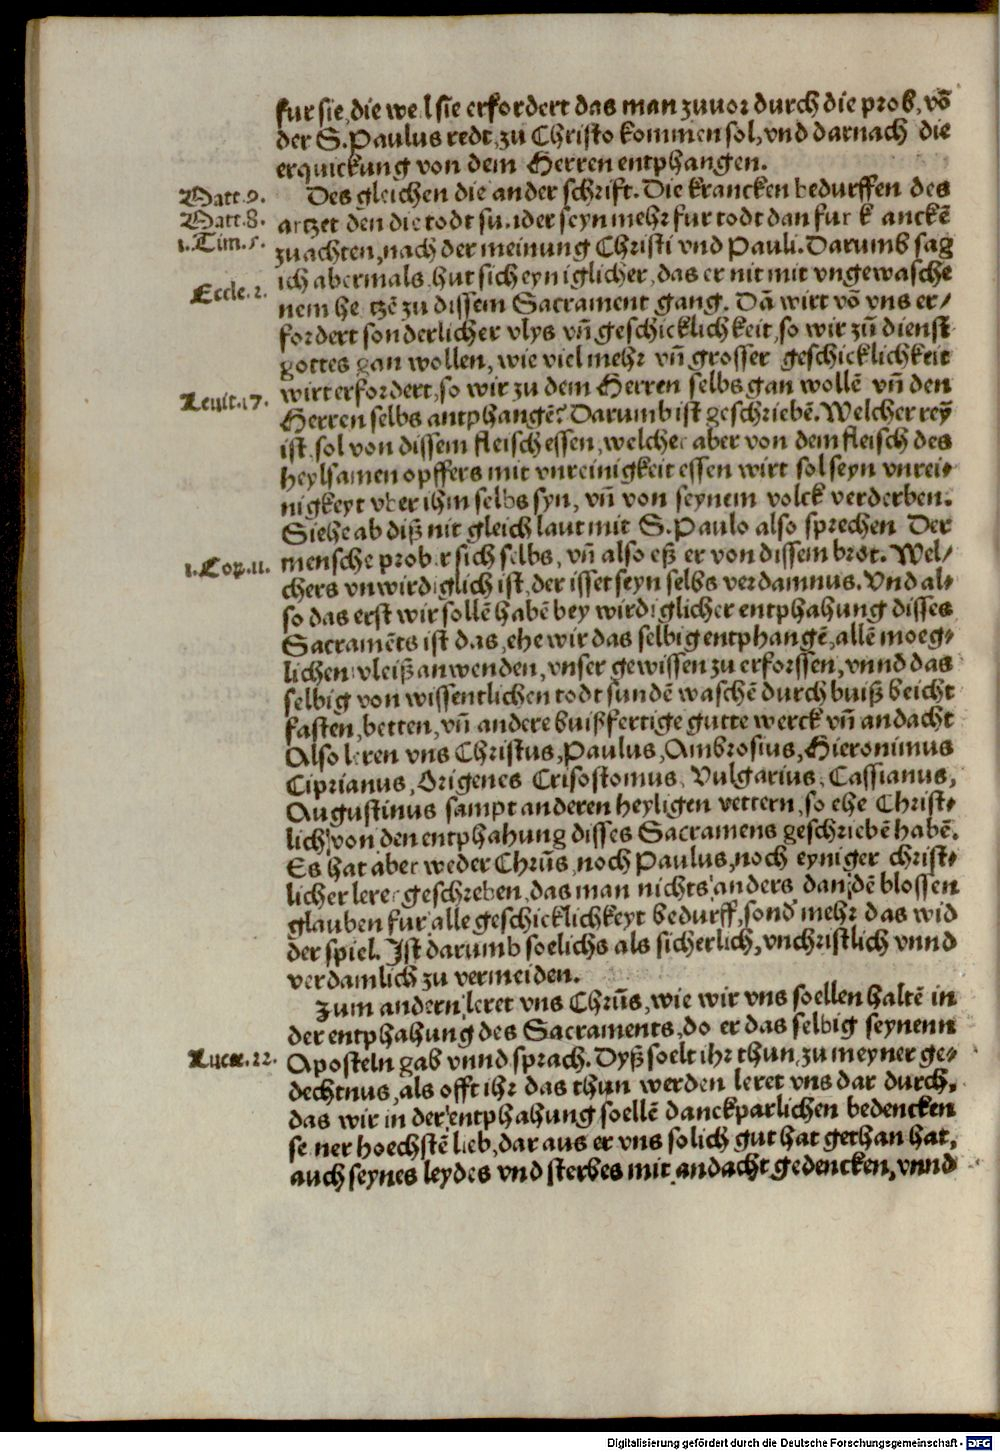 fur sie, die weil sie erfordert das man zuuor durch die prob, võ
der S. Paulus redt, zu Christo kommen sol, vnd darnach die
erquickung von dem Herren entphangen.
Matt. 9.
Des gleichen die ander schrift. Die krancken bedurffen des
Matt. 8.
artzet den die todt sunder seyn mehr fur todt dan fur k anckẽ
1. Tim. 5.
zu achten, nach der meinung Christi vnd Pauli. Darumb sag
ich abermals, hut sich eyn iglicher, das er nit mit vngewasche
Eccle. 2.
nem he tzẽ zu dissem Sacrament gang. Dã wirt võ vns er/
fordert sonderlicher vlys vñ geschicklichkeit, so wir zũ dienst
gottes gan wollen, wie viel mehr vñ grosser geschicklichkeit
wirt erfordert, so wir zu dem Herren selbs gan wollẽ vñ den
Leuit. 17.
Herren selbs antphangẽ? Darumb ist geschriebẽ. Welcher reyñ
ist, sol von dissem fleisch essen, welcher aber von dem fleisch des
heylsamen opffers mit vnreinigkeit essen wirt sol seyn vnrei-
nigkeyt vber ihm selbs syn, vñ von seynem volck verderben.
Siehe ab diß nit gleich laut mit S. Paulo also sprechen Der
1. Cor. 11.
mensche prober sich selbs, vñ also eß er von dissem brot. Wel/
chers vnwirdiglich ist, der isset seyn selbs verdamnus. Vnd al-
so das erst wir sollẽ habẽ bey wirdiglicher entphahung disses
Sacramẽts ist das, ehe wir das selbig entphangẽ, allẽ moeg-
lichen vleiß anwenden, vnser gewissen zu erforssen, vnnd das
selbig von wissentlichen todt sundẽ waschẽ durch buiß beicht
fasten, betten, vñ andere buißfertige gutte werck vñ andacht
Also leren vns Christus, Paulus, Ambrosius, Hieronimus
Ciprianus, Origenes Crisostomus, Vulgarius, Cassianus,
Augustinus sampt anderen heyligen vettern, so ehe Christ-
lich von den entphahung disses Sacramens geschriebẽ habẽ.
Es hat aber weder Chrũs, noch Paulus, noch eyniger christ-
licher lerer geschreben, das man nichts anders dan dẽ blossen
glauben fur alle geschicklichkeyt bedurff, sond' mehr das wid
der spiel. Ist darumb soelichs als sicherlich, vnchristlich vnnd
verdamlich zu vermeiden.
Zum andern leret vns Chrũs, wie wir vns soellen haltẽ in
der entphahung des Sacraments, do er das selbig seynenn
Lucæ. 22.
Aposteln gab vnnd sprach. Dyß soelt ihr thun, zu meyner ge-
dechtnus, als offt ihr das thun werden leret vns dar durch,
das wir in der entphahung soellẽ danckparlichen bedencken
se ner hoechstẽ lieb, dar aus er vns solich gut hat gethan hat,
auch seynes leydes vnd sterbes mit andacht gedencken, vnnd
Digitalisierung gefördert durch die Deutsche Forschungsgemeinschaft - DFG